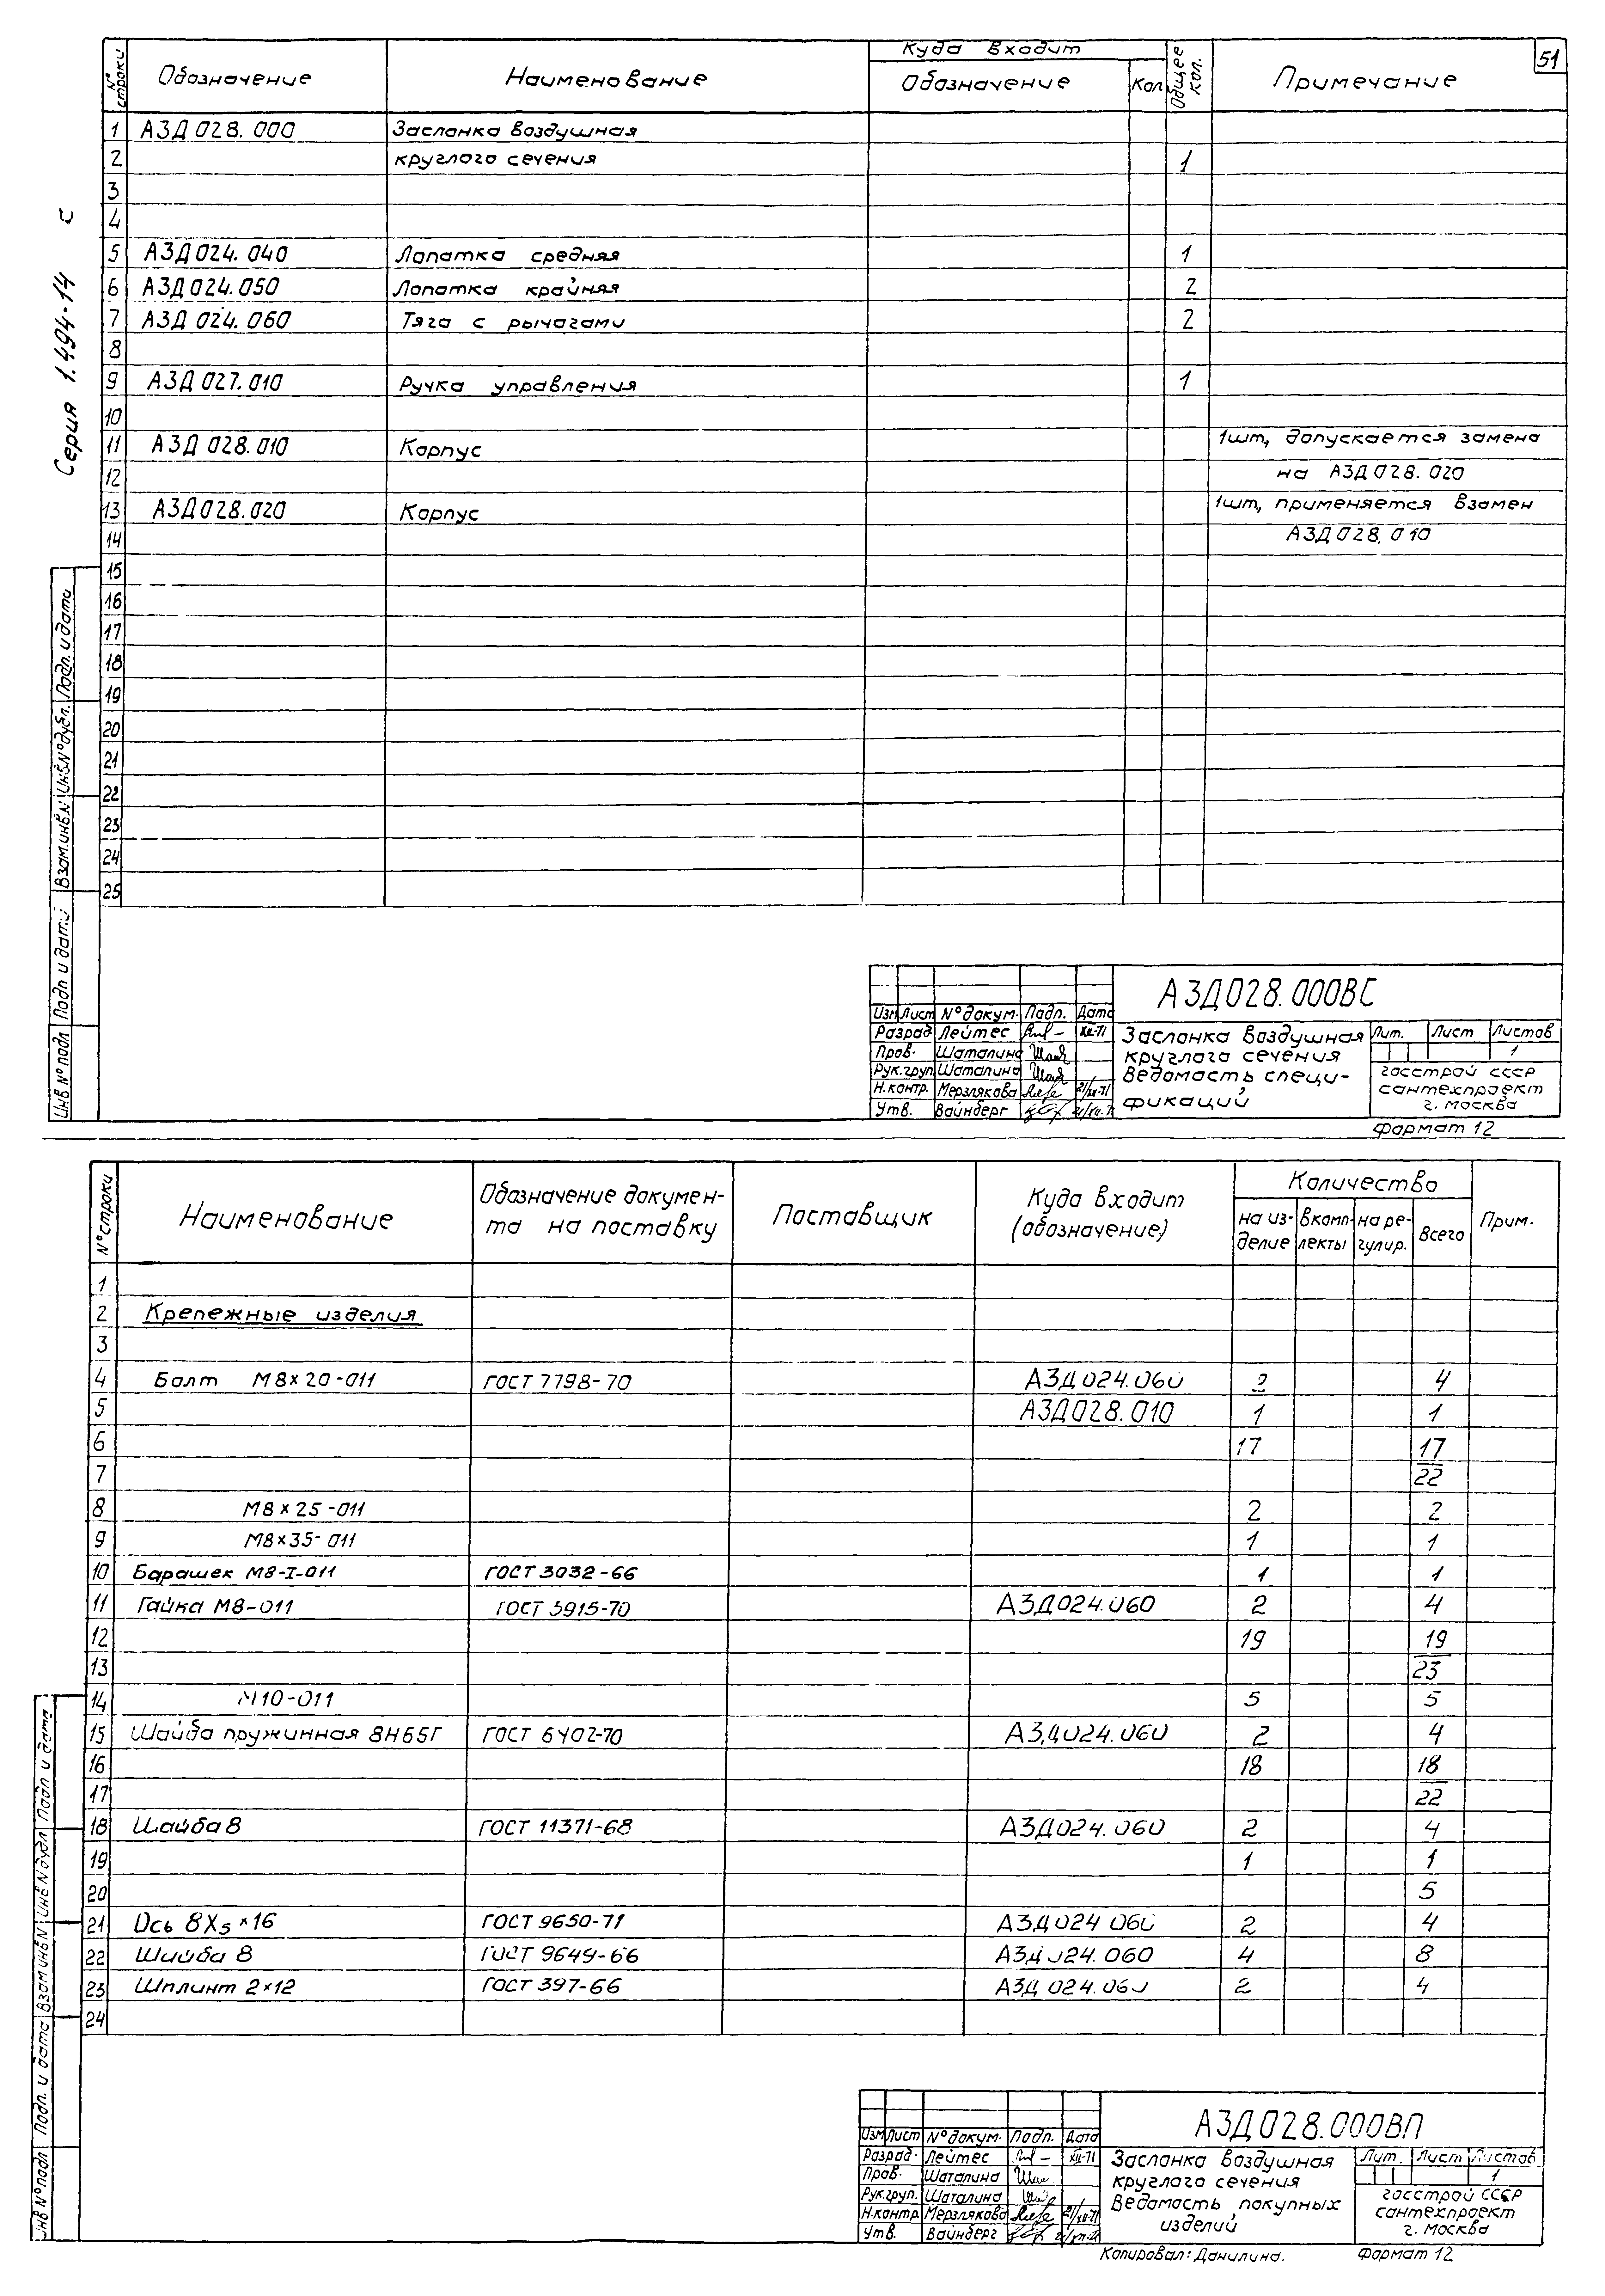 51
Серия 1.494-14
№ строки Обозначение Наименование Куда входит Общее кол. Примечание
Обозначение Кол
1 АЗД 028.000 Заслонка воздушная
2 круглого сечения 1
3
4
5 АЗД 024.040 Лопатка средняя 1
6 АЗД 024.050 Лопатка крайняя 2
7 АЗД 024.060 Тяга с рычагами 2
8
9 АЗД 027.010 Ручка управления 1
10
11 АЗД 028.010 Корпус 1шт, допускается замена
12 на АЗД 028.020
13 АЗД 028.020 Корпус 1шт, применяется взамен
14 АЗД 028.010
15
16
17
18
19
20
21
22
23
24
25
Инв № подл Подп и дата Взам.инв.№ Инв.№дубл. Подп. и дата
АЗД028.000ВС
Изм Лист № докум. Подп. Дата
Разраб Лейтес XII-71
Пров. Шаталина
Рук.груп Шаталина
Н.контр. Мерзлякова
Утв. Вайнберг
Заслонка воздушная
круглого сечения
Ведомость специ-
фикаций
Лит. Лист Листов
1
госстрой ссср
сантехпроект
г. москва
Формат 12
№ строки Наименование Обозначение докумен-
та на поставку Поставщик Куда входит
(обозначение) Количество Прим.
на из-
делие в комп-
лекты на ре-
гулир. Всего
1
2 Крепежные изделия
3
4 Болт М8×20-011 ГОСТ 7798-70 АЗД 024.060 2 4
5 АЗД 028.010 1 1
6 17 17
7 22
8 М8×25-011 2 2
9 М8×35-011 1 1
10 Барашек М8-I-011 ГОСТ 3032-66 1 1
11 Гайка М8-011 ГОСТ 5915-70 АЗД 024.060 2 4
12 19 19
13 23
14 М10-011 5 5
15 Шайба пружинная 8Н65Г ГОСТ 6402-70 АЗД 024.060 2 4
16 18 18
17 22
18 Шайба 8 ГОСТ 11371-68 АЗД 024.060 2 4
19 1 1
20 5
21 Ось 8Х5×16 ГОСТ 9650-71 АЗД 024 060 2 4
22 Шайба 8 ГОСТ 9649-66 АЗД 024.060 4 8
23 Шплинт 2×12 ГОСТ 397-66 АЗД 024.060 2 4
24
Инв № подл Подп. и дата Взам инв № Инв № дубл Подп и дата
АЗД 028.000ВП
Изм Лист № докум. Подп. Дата
Разраб. Лейтес XII-71
Пров. Шаталина
Рук.груп. Шаталина
Н.контр Мерзлякова
Утв. Вайнберг
Заслонка воздушная
круглого сечения
Ведомость покупных
изделий
Лит. Лист Листов
1
госстрой СССР
сантехпроект
г. москва
Копировал: Данилина. Формат 12